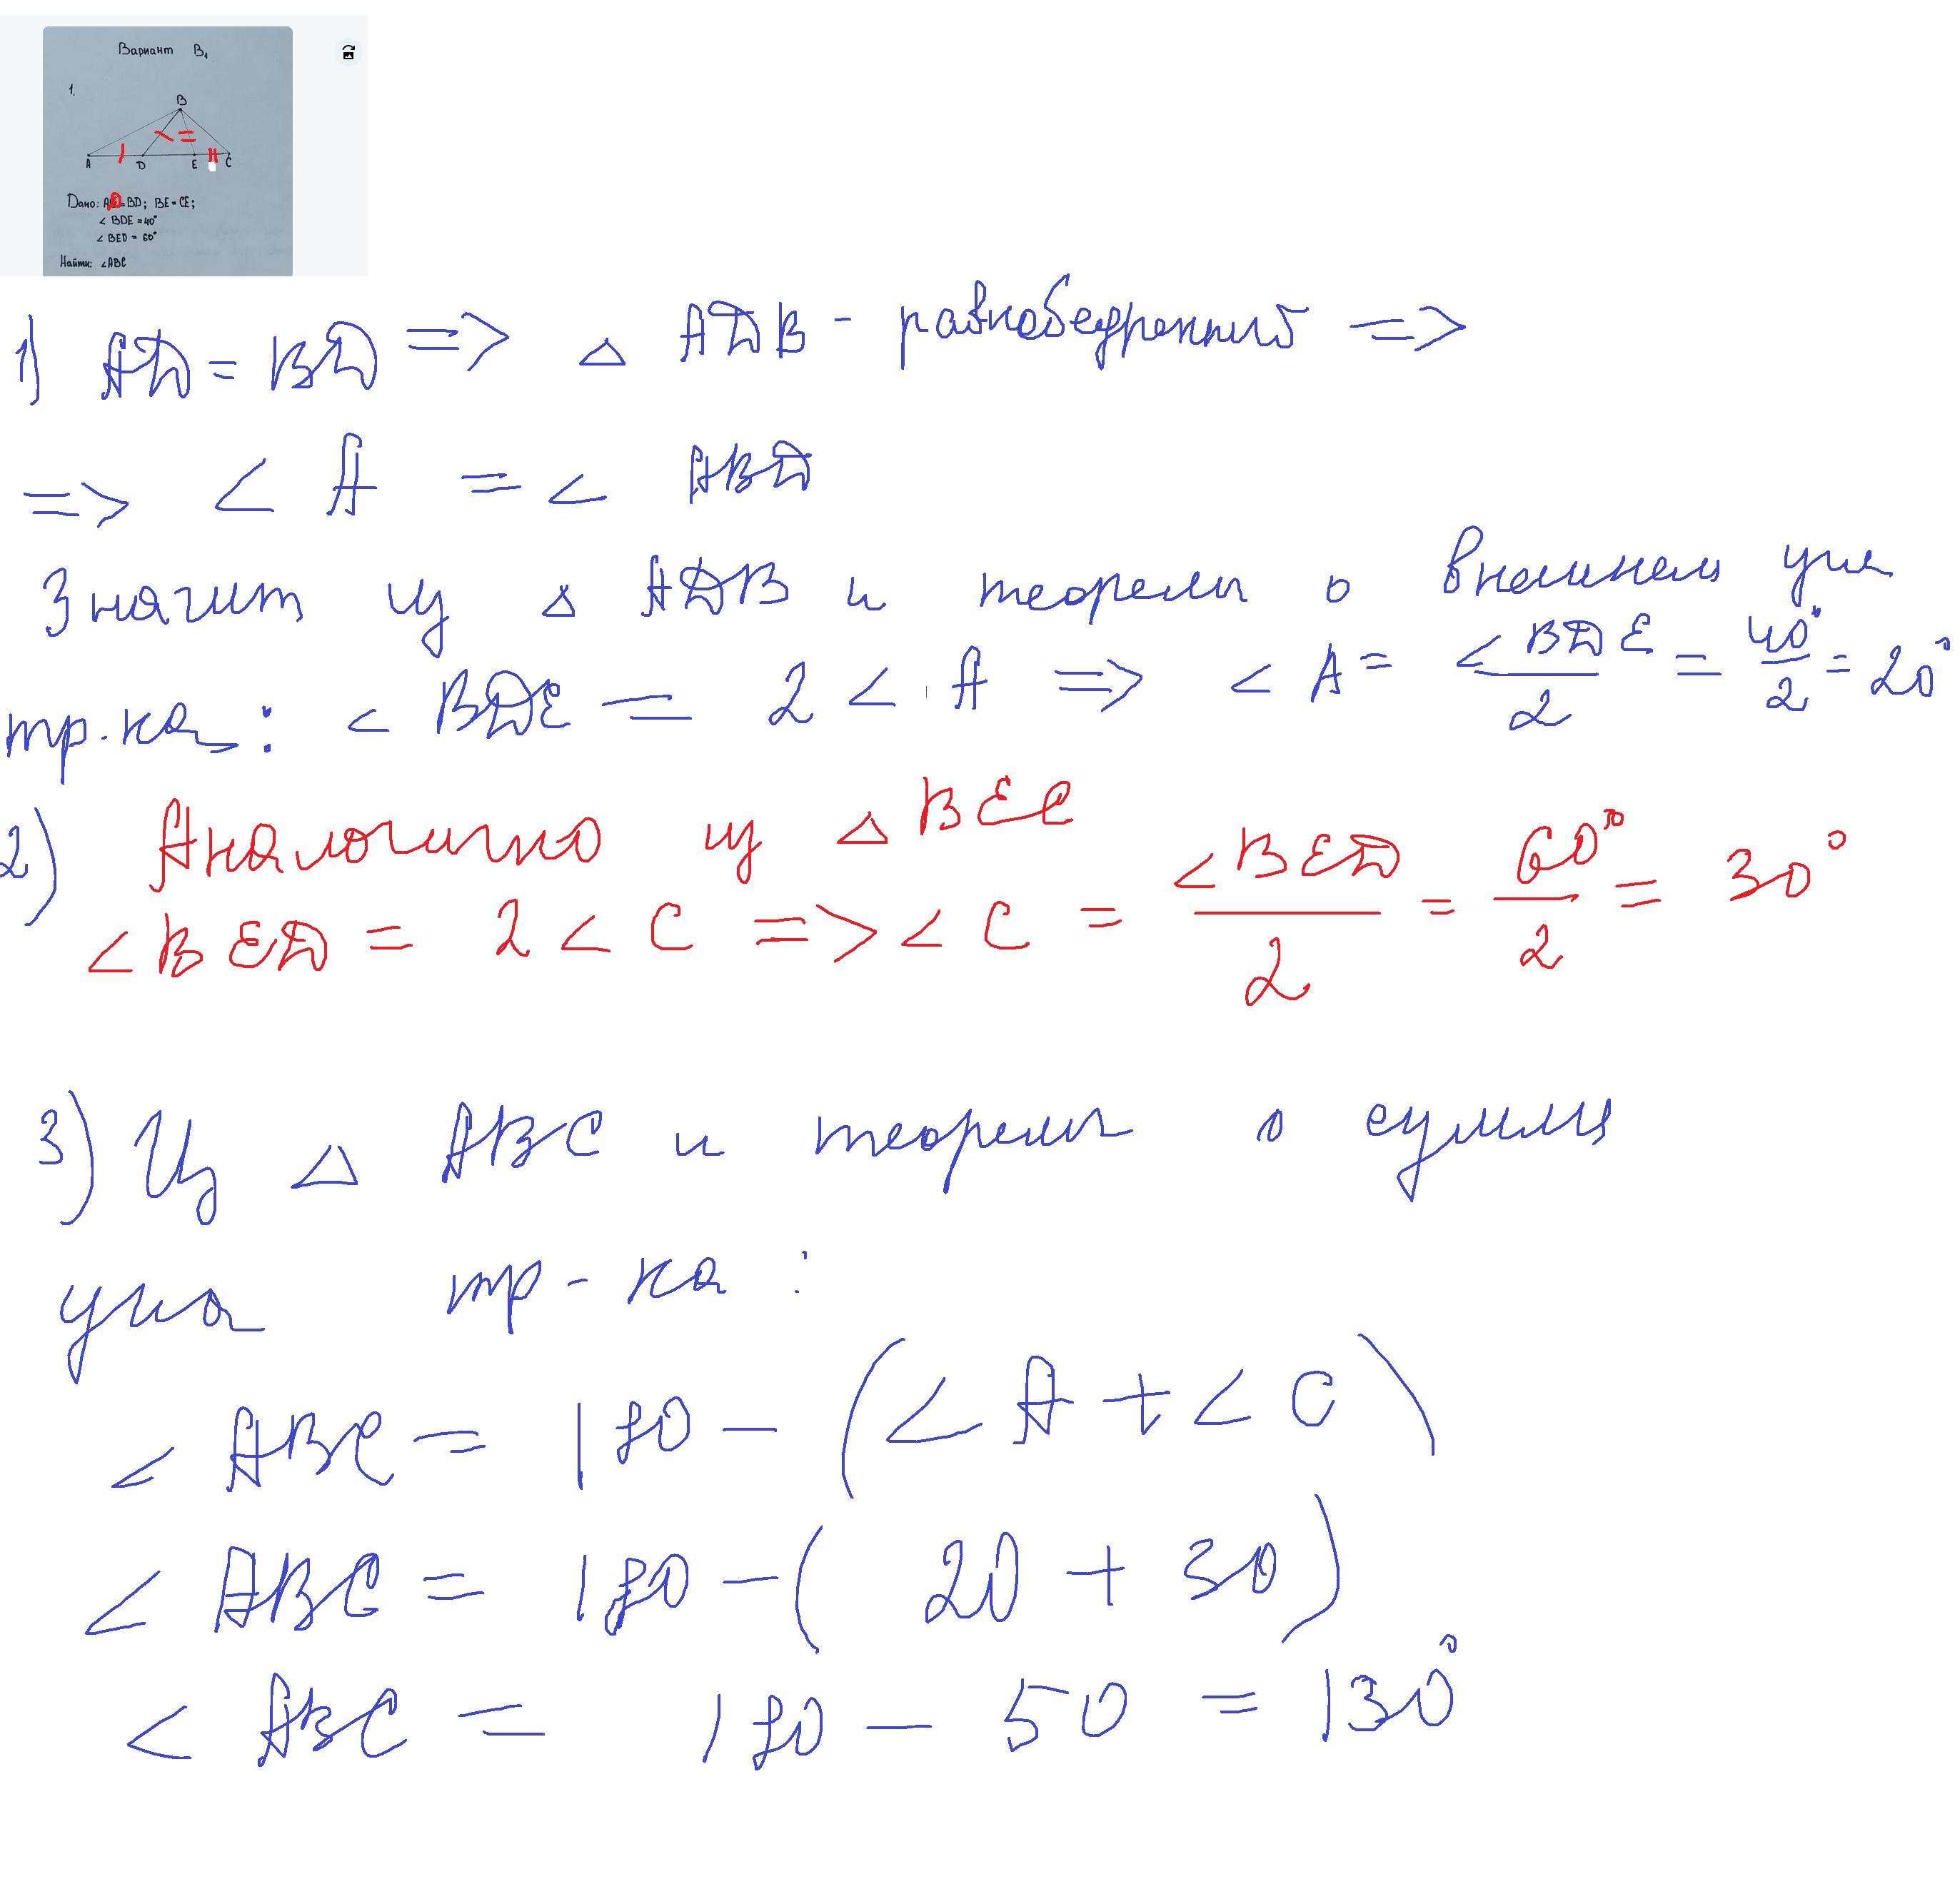 Вариант В₁
1.
B
A D E C
Дано: AD = BD; BE = CE;
∠ BDE = 40°
∠ BED = 60°
Найти: ∠ABC
1) AD = BD => △ ADB - равнобедренный =>
=> ∠ A = ∠ ABD
Значит из △ ADB и теоремы о внешнем угле
тр-ка: ∠ BDE = 2 ∠ A => ∠ A = ∠BDE/2 = 40°/2 = 20°
2) Аналогично из △ BEC
∠BED = 2 ∠ C => ∠ C = ∠BED/2 = 60°/2 = 30°
3) Из △ ABC и теоремы о сумме
угла тр-ка:
∠ ABC = 180 - (∠ A + ∠ C)
∠ ABC = 180 - (20 + 30)
∠ ABC = 180 - 50 = 130°